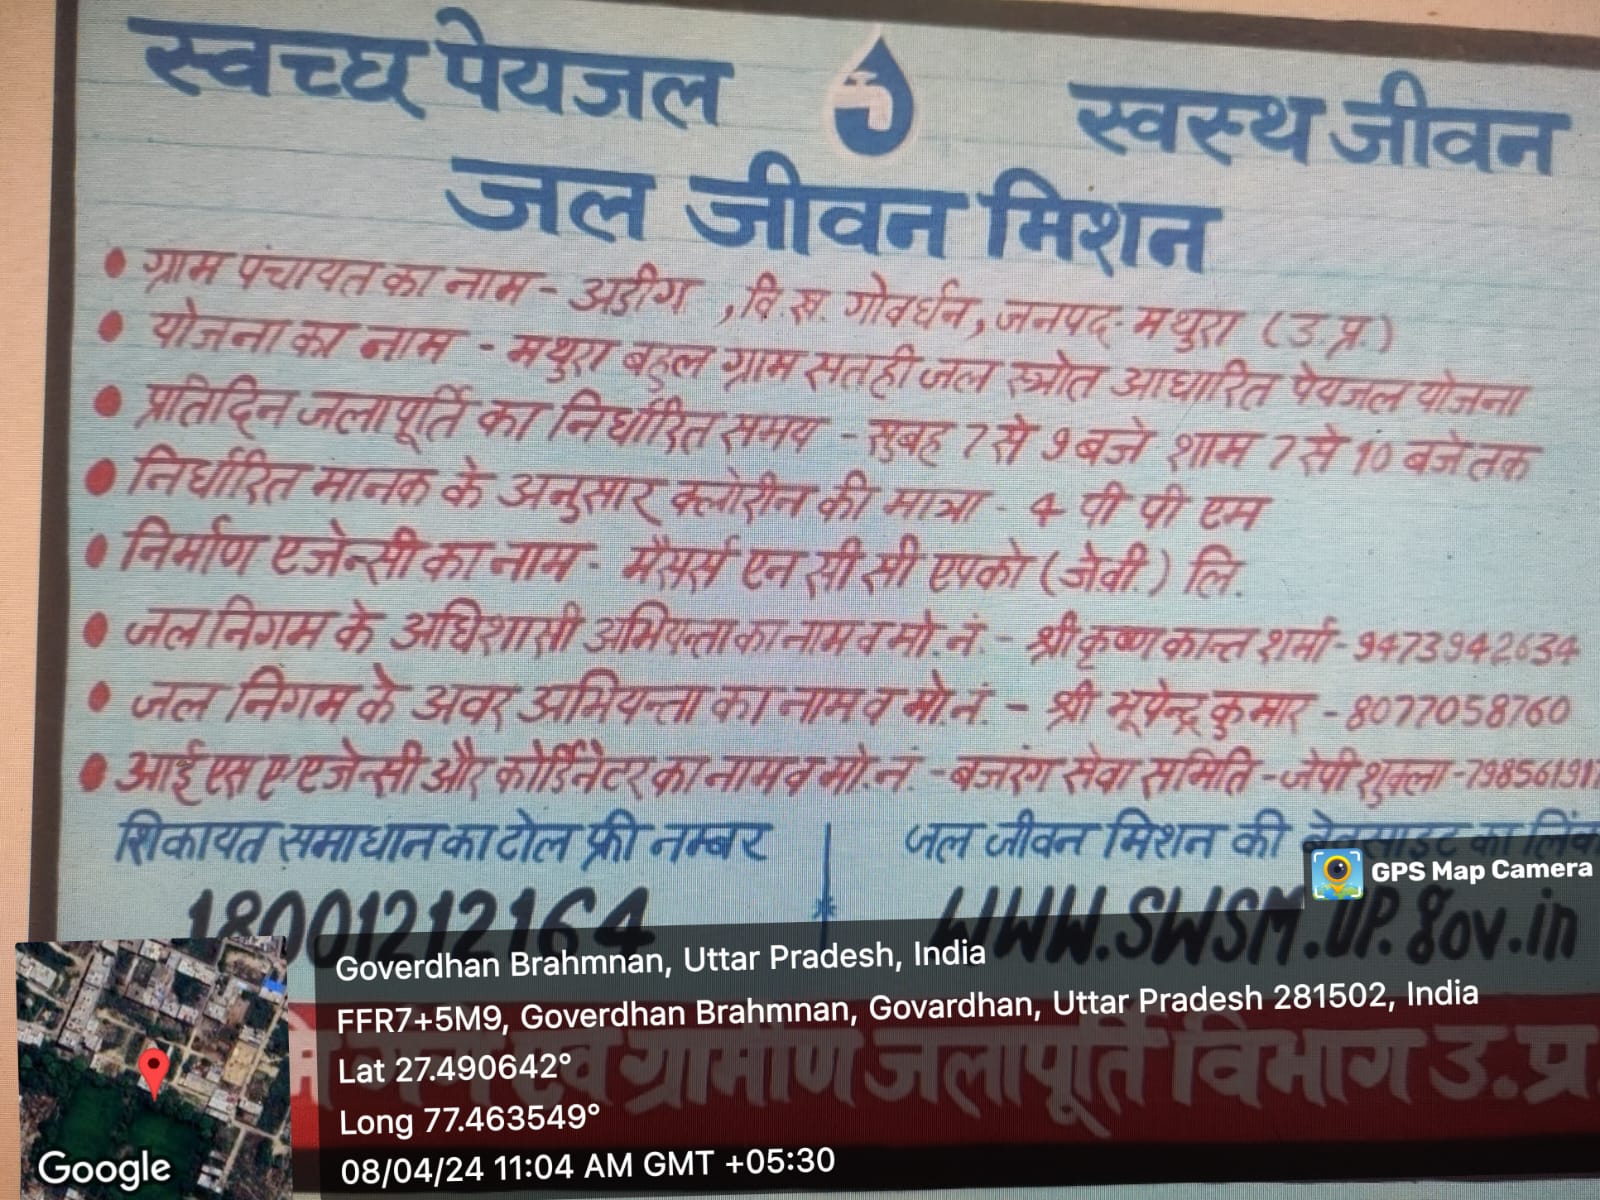 स्वच्छ पेयजल स्वस्थ जीवन
जल जीवन मिशन
• ग्राम पंचायत का नाम - अडींग , वि.ख. गोवर्धन, जनपद- मथुरा (उ.प्र.)
• योजना का नाम - मथुरा बहुल ग्राम सतही जल स्त्रोत आधारित पेयजल योजना
• प्रतिदिन जलापूर्ति का निर्धारित समय - सुबह 7 से 9 बजे शाम 7 से 10 बजे तक
• निर्धारित मानक के अनुसार क्लोरीन की मात्रा - 4 पी पी एम
• निर्माण एजेन्सी का नाम - मैसर्स एन सी सी एपको (जे.वी.) लि.
• जल निगम के अधिशासी अभियन्ता का नाम व मो.नं. - श्री कृष्ण कान्त शर्मा- 9473942634
• जल निगम के अवर अभियन्ता का नाम व मो.नं. - श्री भूपेन्द्र कुमार - 8077058760
• आई एस ए एजेन्सी और कोर्डिनेटर का नाम व मो.नं. - बजरंग सेवा समिति - जेपी शुक्ला - 798561917
शिकायत समाधान का टोल फ्री नम्बर
जल जीवन मिशन की वेबसाइट का लिंक
18001212164
www.SWSM.UP.gov.in
ग्रामीण जलापूर्ति विभाग उ.प्र.
GPS Map Camera
Goverdhan Brahmnan, Uttar Pradesh, India
FFR7+5M9, Goverdhan Brahmnan, Govardhan, Uttar Pradesh 281502, India
Lat 27.490642°
Long 77.463549°
08/04/24 11:04 AM GMT +05:30
Google